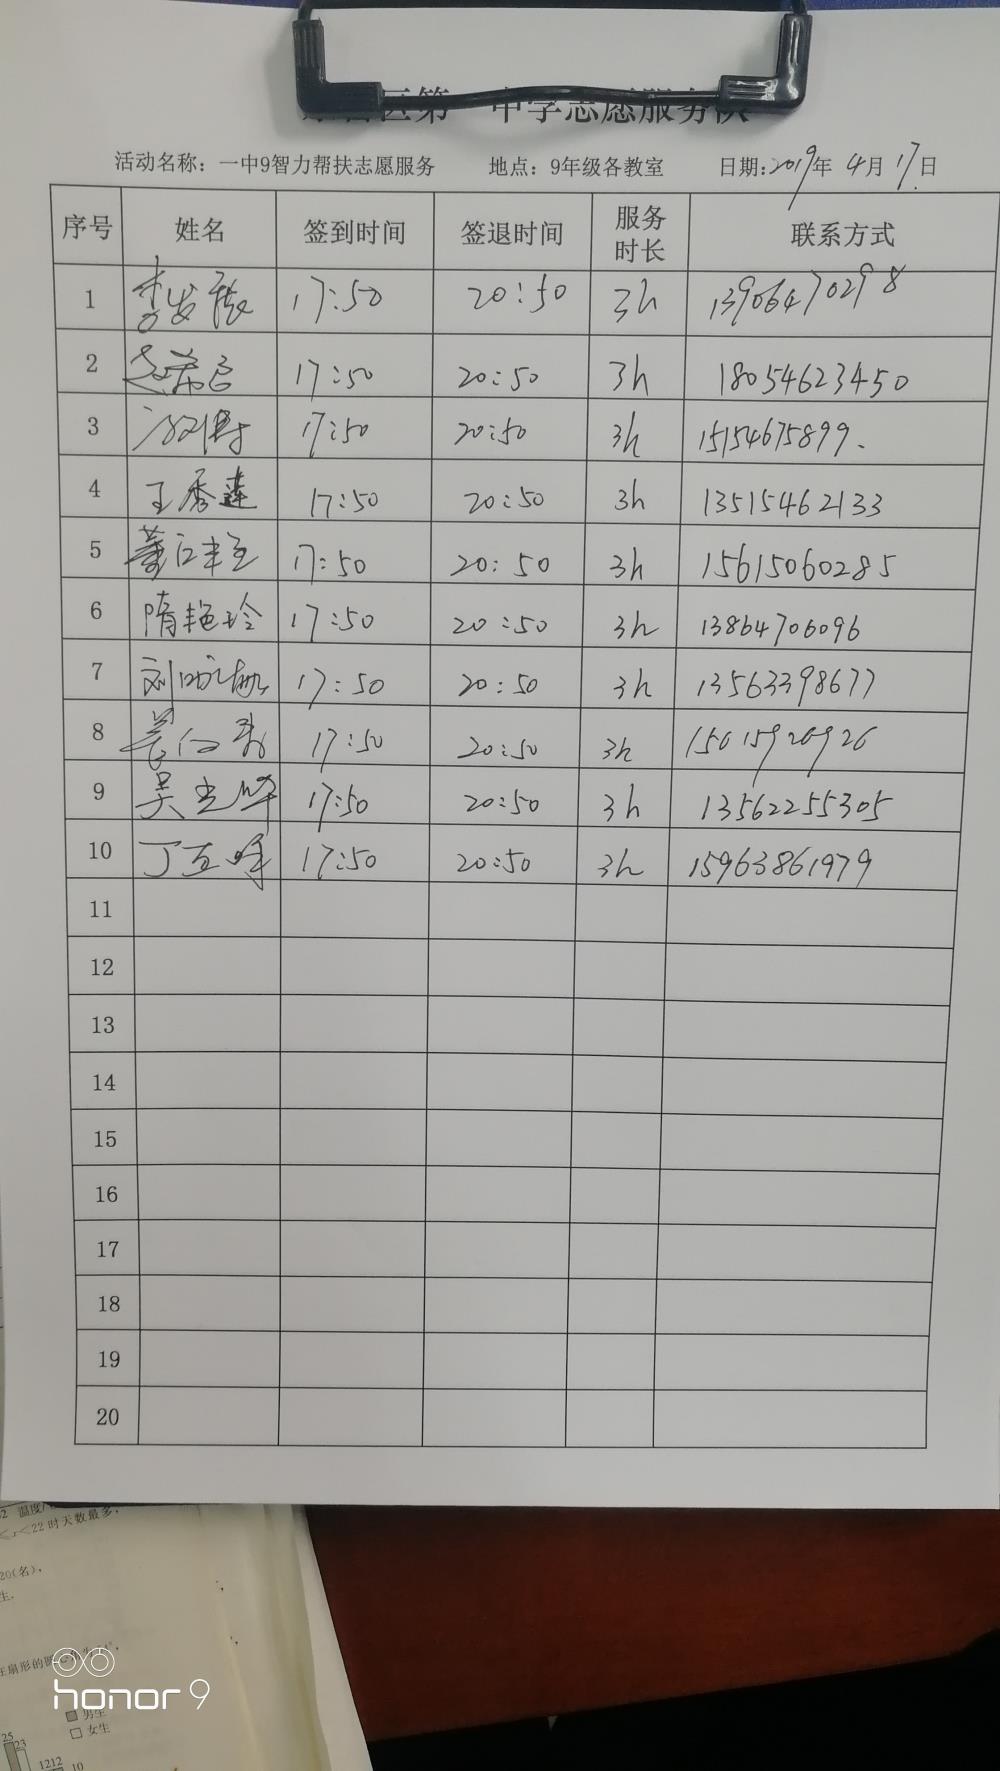 区第一中学志愿服务队
活动名称：一中9智力帮扶志愿服务 地点：9年级各教室 日期:2019年 4月 17日
序号 姓名 签到时间 签退时间 服务时长 联系方式
1 李发展 17:50 20:50 3h 13906470298
2 17:50 20:50 3h 18054623450
3 17:50 20:50 3h 15154675899.
4 王秀莲 17:50 20:50 3h 13515462133
5 17:50 20:50 3h 15615060285
6 隋艳玲 17:50 20:50 3h 13864706096
7 17:50 20:50 3h 13563398677
8 17:50 20:50 3h 15015920926
9 吴光峰 17:50 20:50 3h 13562255305
10 丁互峰 17:50 20:50 3h 15963861979
11
12
13
14
15
16
17
18
19
20
温度
22时天数最多,
20(名),
生.
在扇形的
honor 9
男生
女生
25
23
1212
10